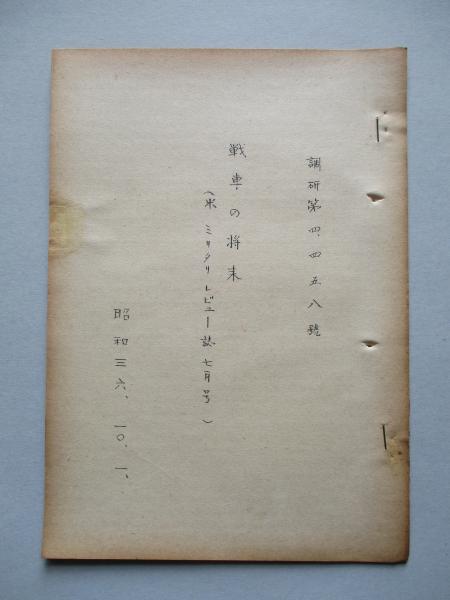 調研第四、四五八號
戦車の将来
(米 ミリタリレビュー誌 七月号)
昭和三六、一〇、一、